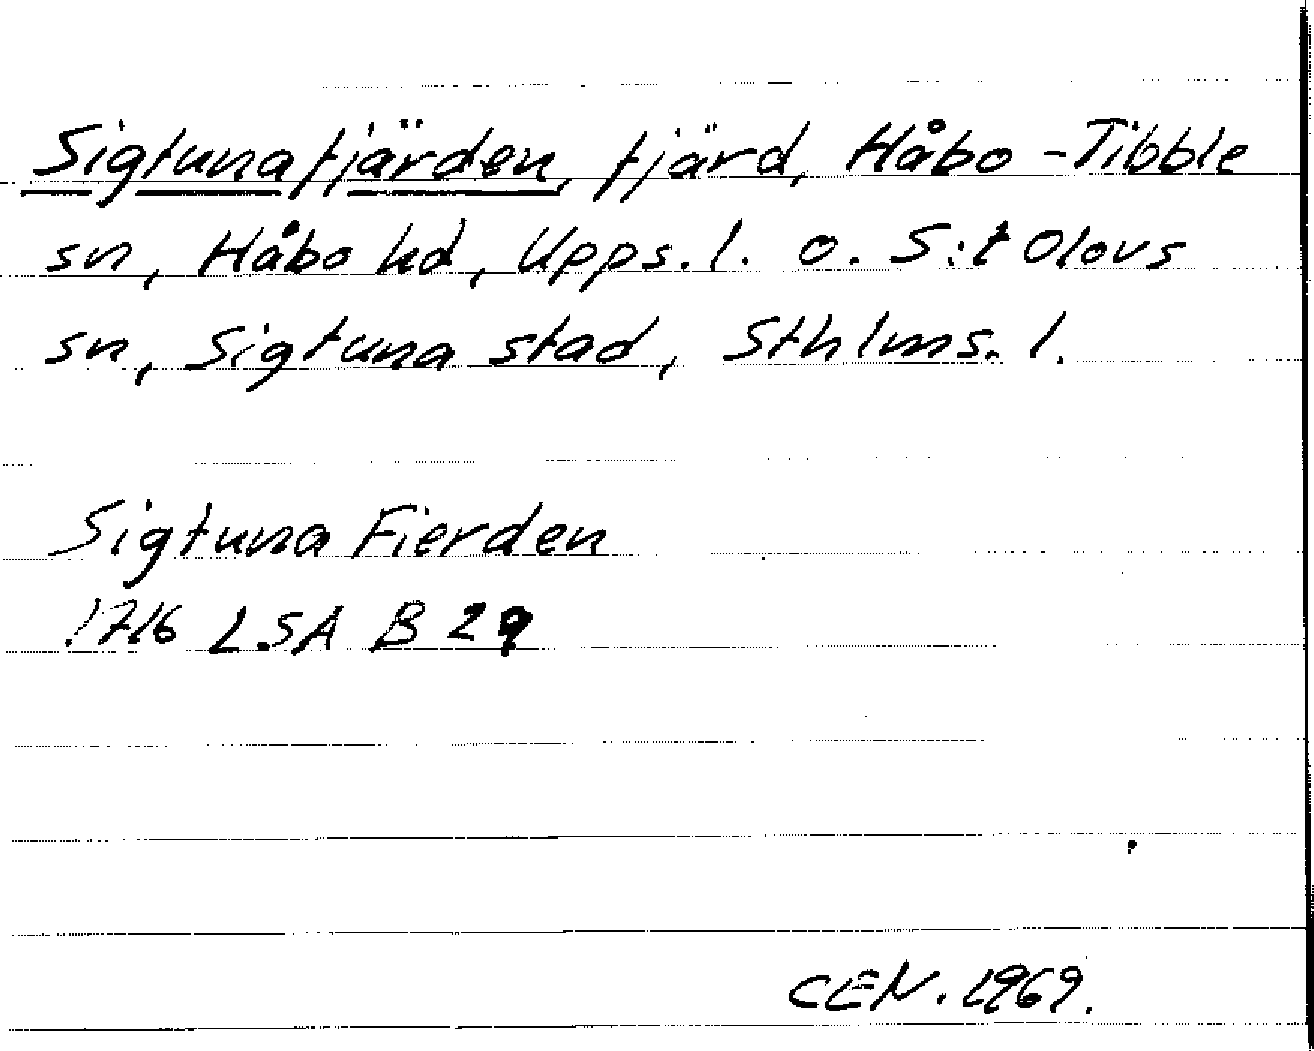 Sigtunafjärden, fjärd, Håbo-Tibble
sn, Håbo hd, Upps. l. o. S:t Olovs
sn, Sigtuna stad, Sthlms. l.
Sigtuna Fierden
1716 LSA B 29
CEN. 1969.